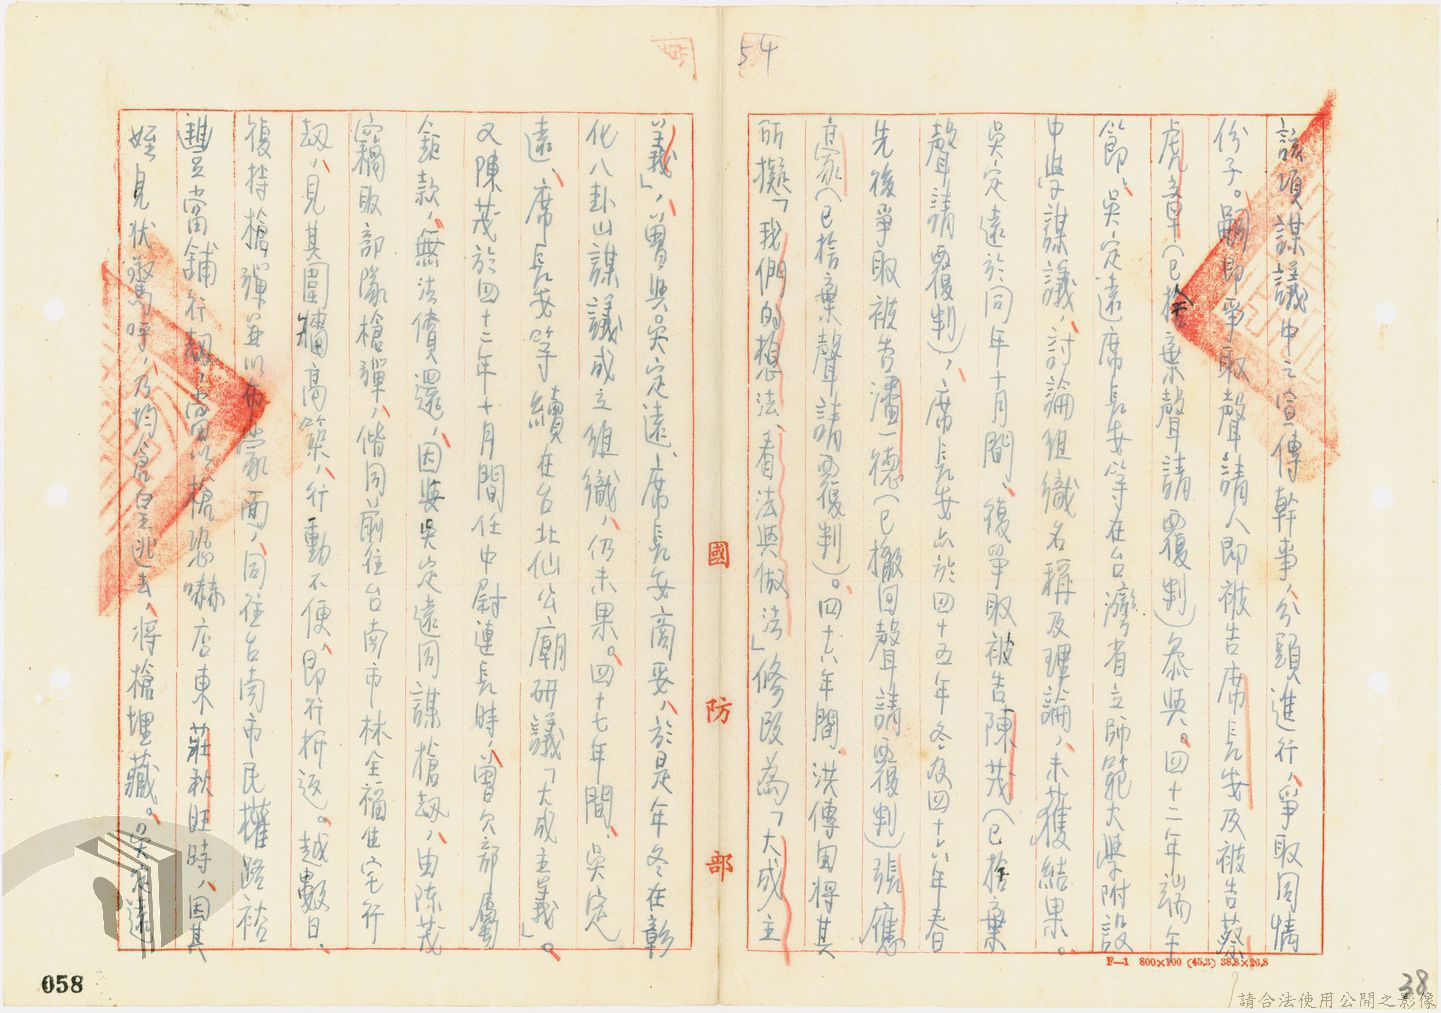 54
該項謀議中之宣傳幹事，分頭進行，爭取同情
份子。嗣即爭取聲請人即被告席長安及被告蔡
虎章（已捨棄聲請覆判）參與。四十二年端午
節，吳定遠席長安等在台灣省立師範大學附設
中學謀議，討論組織名稱及理論，未獲結果。
吳定遠於同年十月間，復爭取被告陳茂（已捨棄
聲請覆判），席長安亦於四十五年冬及四十六年春
先後爭取被告潘一德（已撤回聲請覆判）張應
（已捨棄聲請覆判）。四十六年間。洪傳國將其
所擬「我們的想法、看法與做法」修改為「大成主
義」，曾與吳定遠、席長安商妥，於是年冬在彰
化八卦山謀議成立組織，仍未果。四十七年間，吳定
遠、席長安等續在台北仙公廟研議「大成主義」。
又陳茂於四十二年十月間任中尉連長時，曾欠部屬
餉款，無法償還，因與吳定遠同謀搶劫，由陳茂
竊取部隊槍彈，偕同前往台南市林全福住宅行
劫，見其圍牆高築，行動不便，即行折返。越數日，
復持槍彈並以布蒙面，同往台南市民權路裕
豐當舖行劫，當以槍恐嚇店東莊秋旺時，因其
姪見狀驚呼，乃均倉皇逃去，將槍埋藏。吳定遠
國防部
F—1 800×100 (45.3) 38.8×26.8
058
38
請合法使用公開之影像